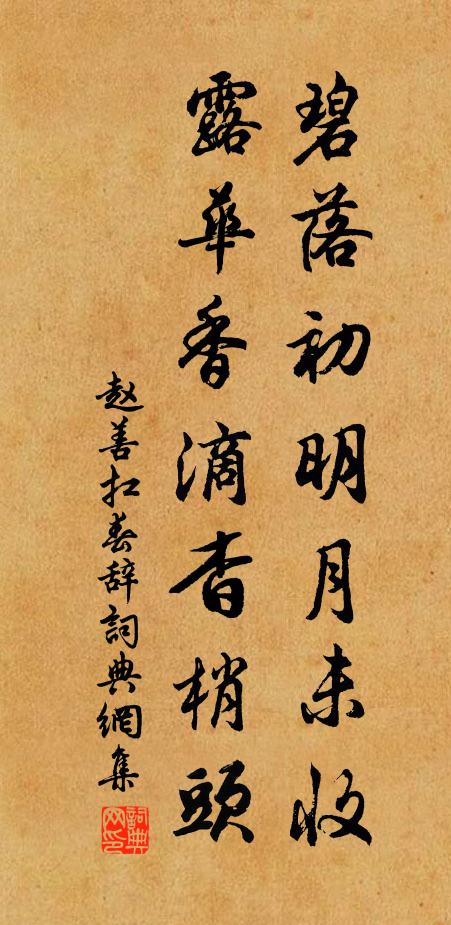 碧落初明月未收
露華香滴杏梢頭
赵善扛春辞詞典網集
詞典网印